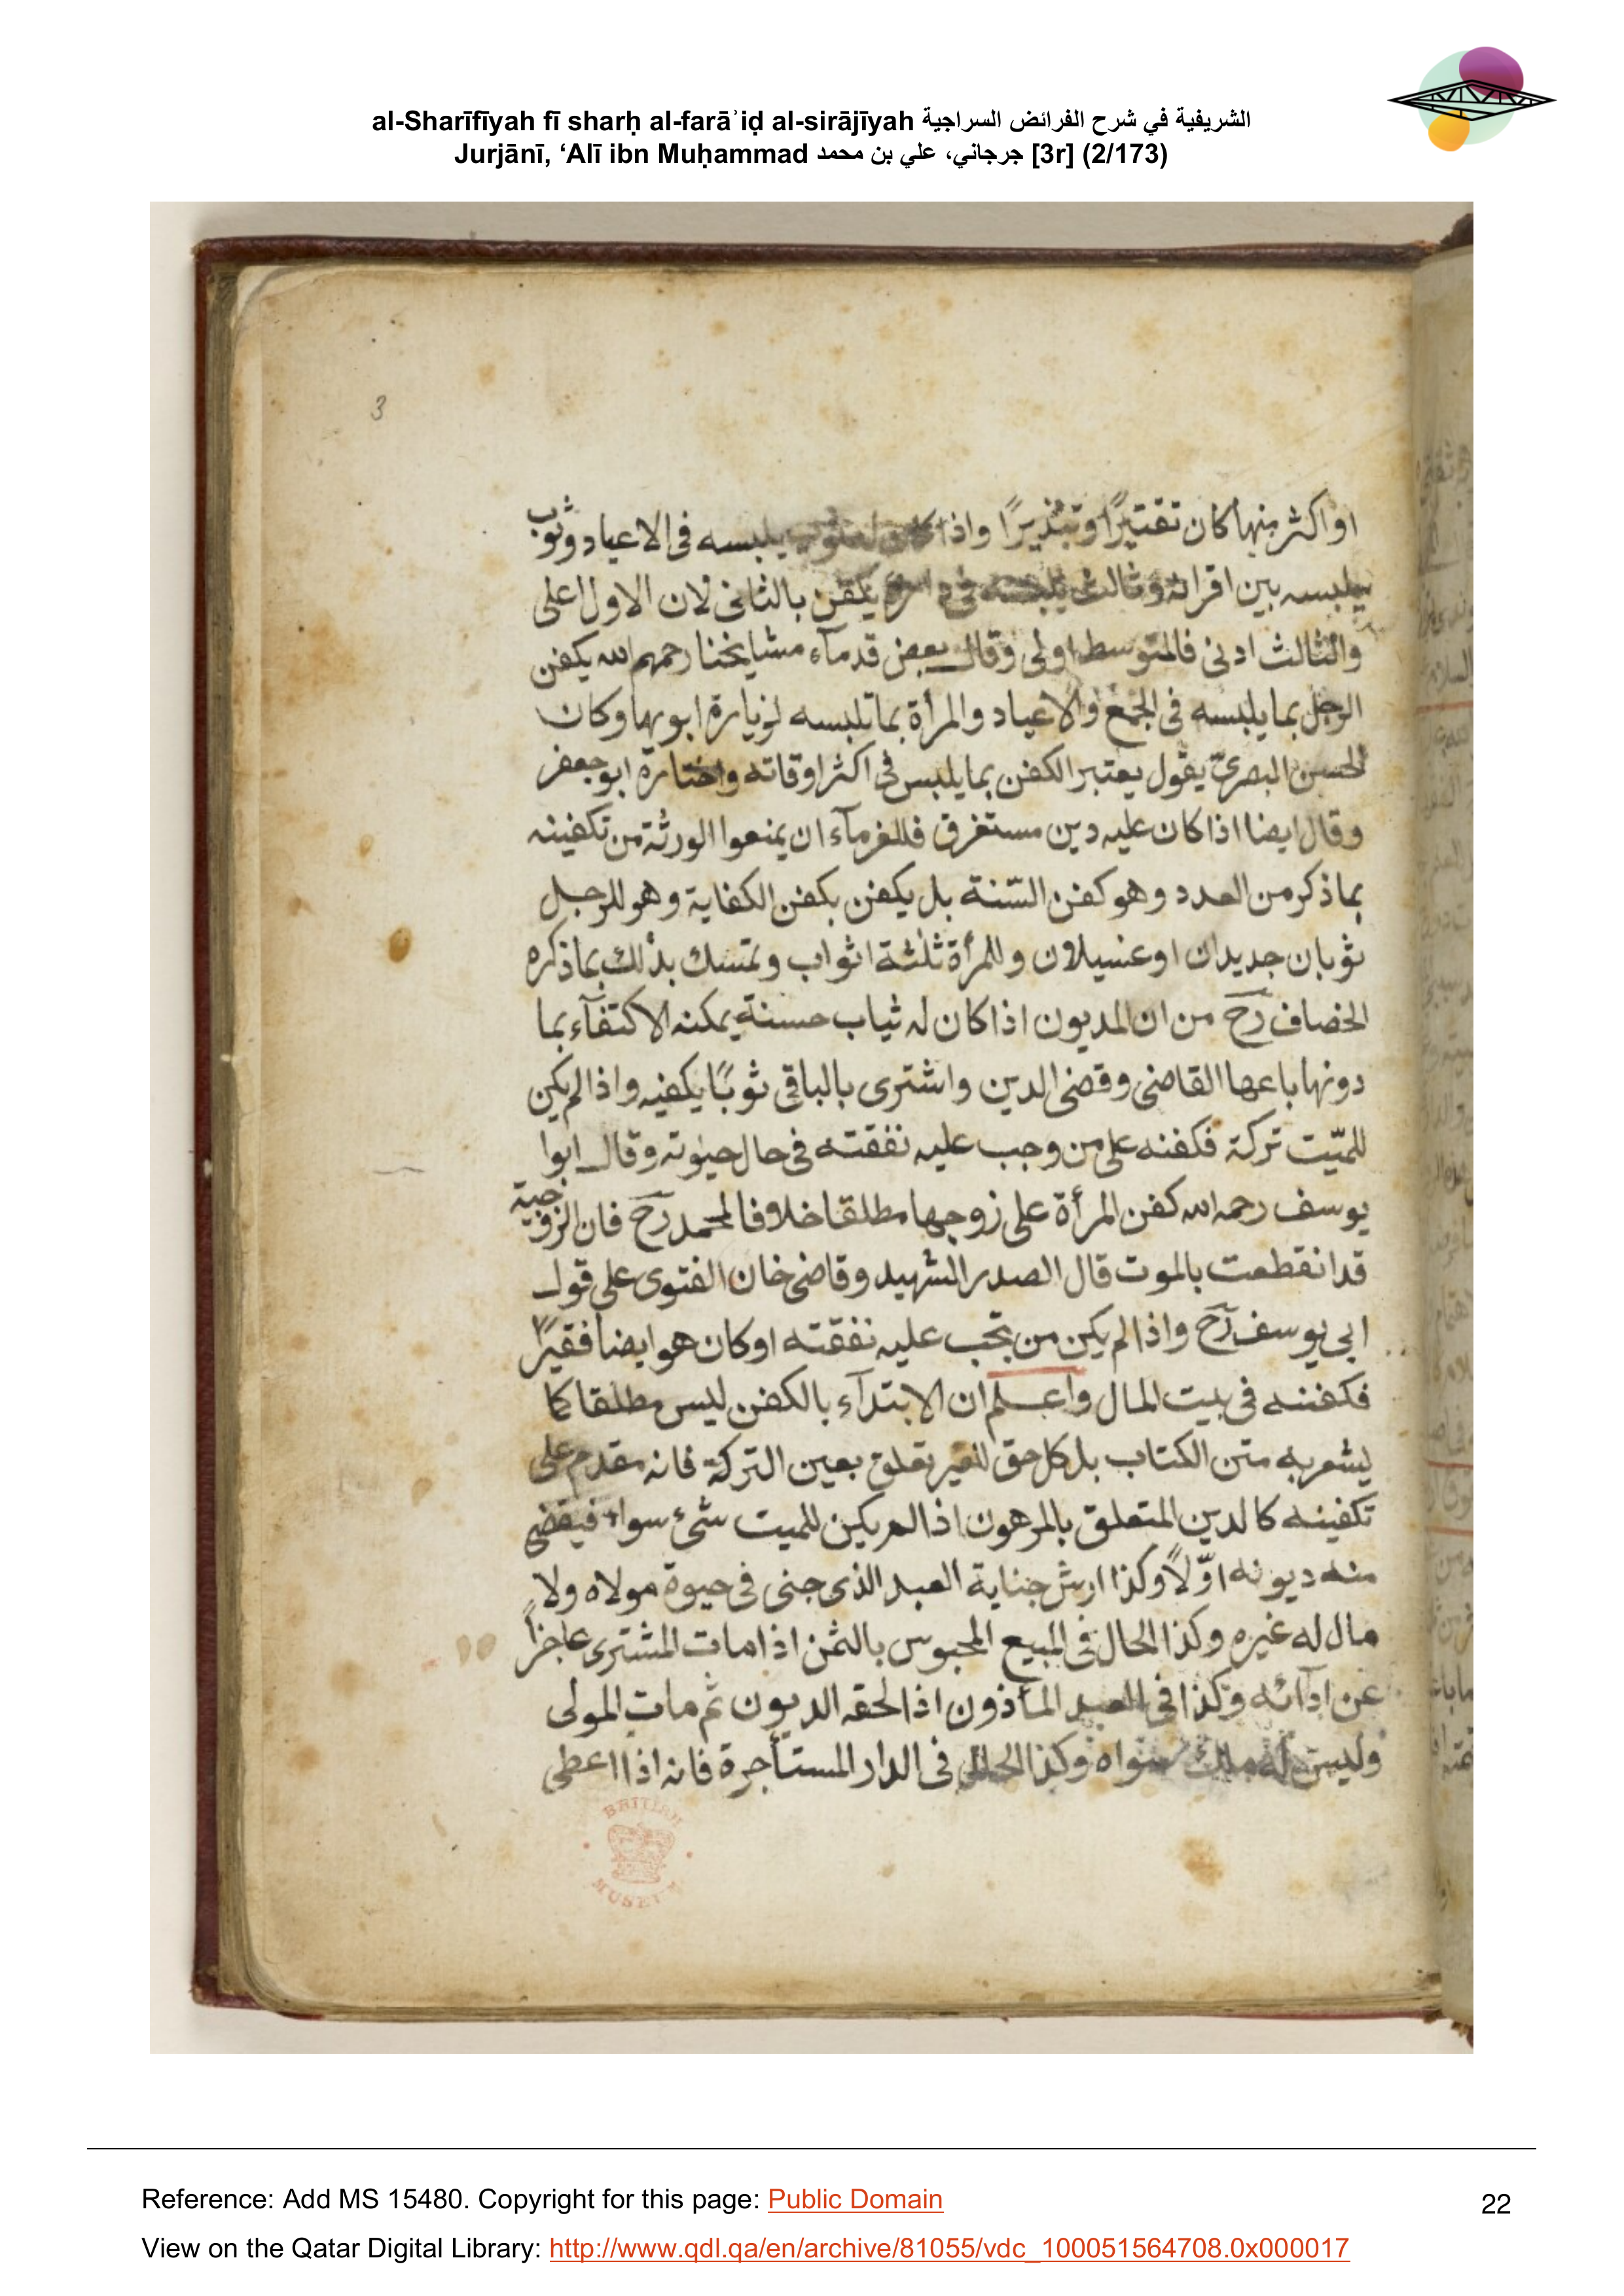 al-Sharīfīyah fī sharḥ al-farāʾiḍ al-sirājīyah الشريفية في شرح الفرائض السراجية
Jurjānī, ‘Alī ibn Muḥammad جرجاني، علي بن محمد [3r] (2/173)
3
او اكثر منها كان تقتيرًا وتبذيرًا واذا كان له ثوب يلبسه فى الاعياد وثوب
يلبسه بين اقرانه وثالث يلبسه فى داره يكفن بالثانى لان الاول اعلى
والثالث ادنى فالمتوسط اولى وقال بعض قدمآء مشايخنا رحمهم الله يكفن
الرجل بما يلبسه فى الجمع والاعياد والمرأة بما تلبسه لزيارة ابويها وكان
الحسن البصرىّ يقول يعتبر الكفن بما يلبس فى اكثر اوقاته واختاره ابو جعفر
وقال ايضا اذا كان عليه دين مستغرق فللغرمآء ان يمنعوا الورثة من تكفينه
بما ذكر من العدد وهو كفن السّنة بل يكفن بكفن الكفاية وهو للرجل
ثوبان جديدان او غسيلان وللمرأة ثلثة اثواب وتمسك بذلك بما ذكره
الخصاف رح من ان المديون اذا كان له ثياب حسنة يمكنه الاكتفآء بما
دونها باعها القاضى وقضى الدين واشترى بالباقى ثوبًا يكفيه واذا لم يكن
للميّت تركة فكفنه على من وجب عليه نفقته فى حال حيوته وقال ابوا
يوسف رحمه الله كفن المرأة على زوجها مطلقا خلافا لمحمد رح فان الزوجية
قد انقطعت بالموت قال الصدر الشهيد وقاضى خان الفتوى على قول
ابى يوسف رح واذا لم يكن من تجب عليه نفقته او كان هو ايضا فقيرًا
فكفنه فى بيت المال واعلم ان الابتدآء بالكفن ليس مطلقا كما
يشعر به متن الكتاب بل كل حق للغير تعلق بعين التركة فانه مقدم على
تكفينه كالدين المتعلق بالمرهون اذا لم يكن للميت شئ سواه فيقضى
منه ديونه اوّلاً وكذا ارش جناية العبد الذى جنى فى حيوة مولاه ولا
مال له غيره وكذا الحال فى المبيع المحبوس بالثمن اذا مات المشترى عاجزاً
عن ادآئه وكذا فى العبد المأذون اذا لحقه الديون ثم مات المولى
وليس له ملك سواه وكذا الحال فى الدار المستأجرة فانه اذا اعطى
BRITISH
MUSEUM
Reference: Add MS 15480. Copyright for this page: Public Domain
22
View on the Qatar Digital Library: http://www.qdl.qa/en/archive/81055/vdc_100051564708.0x000017